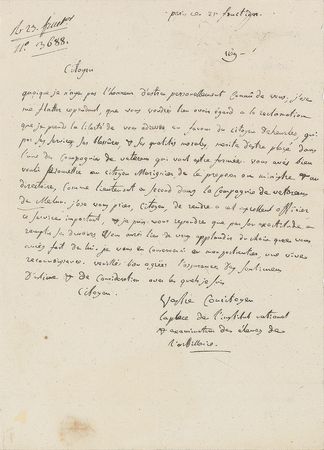 Le 23. fructidor
n°. 3688.
paris ce 21 fructidor
Citoyen
quoique je n'aye pas l'honneur d'être personnellement connu de vous, j'ose
me flatter cependant, que vous voudrez bien avoir égard à la réclamation
que je prends la liberté de vous adresser en faveur du citoyen qui
par ses services, ses blessures, & ses qualités morales, mérite d'être placé dans
l'une des compagnies de veterans qui vont être formées. vous avez bien
voulu promettre au citoyen de le proposer au ministre & au
directoire, comme lieutenant en second dans la compagnie de veterans
de Melun. j'ose vous prier, citoyen de rendre à cet excellent officier
ce service important, & je puis vous répondre que par son exactitude à
remplir ses devoirs, vous aurez lieu de vous applaudir du choix que vous
aurez fait de lui. je vous en conserverai en mon particulier, une vive
reconnaissance. veuillez bien agréer l'assurance des sentimens
d'estime & de consideration avec lesquels je suis
Citoyen.
Votre Concitoyen
Laplace de l'institut national
& examinateur des élèves de
l'artillerie.